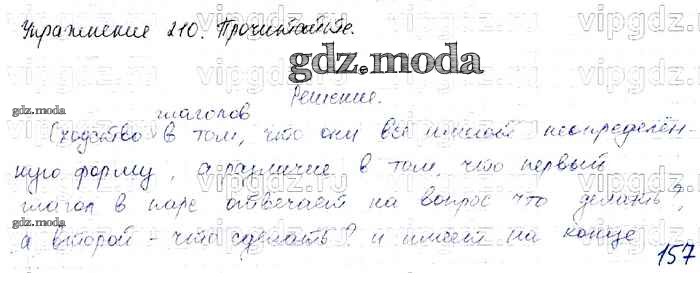 Упражнение 210. Прочитайте.
gdz.moda
Решение.
gdz.moda
глаголов
Сходство в том, что они все имеют неопределён-
ную форму, а различие в том, что первый
глагол в паре отвечает на вопрос что делать?,
gdz.moda
а второй - что сделать? и имеет на конце
157
vipgdz.ru